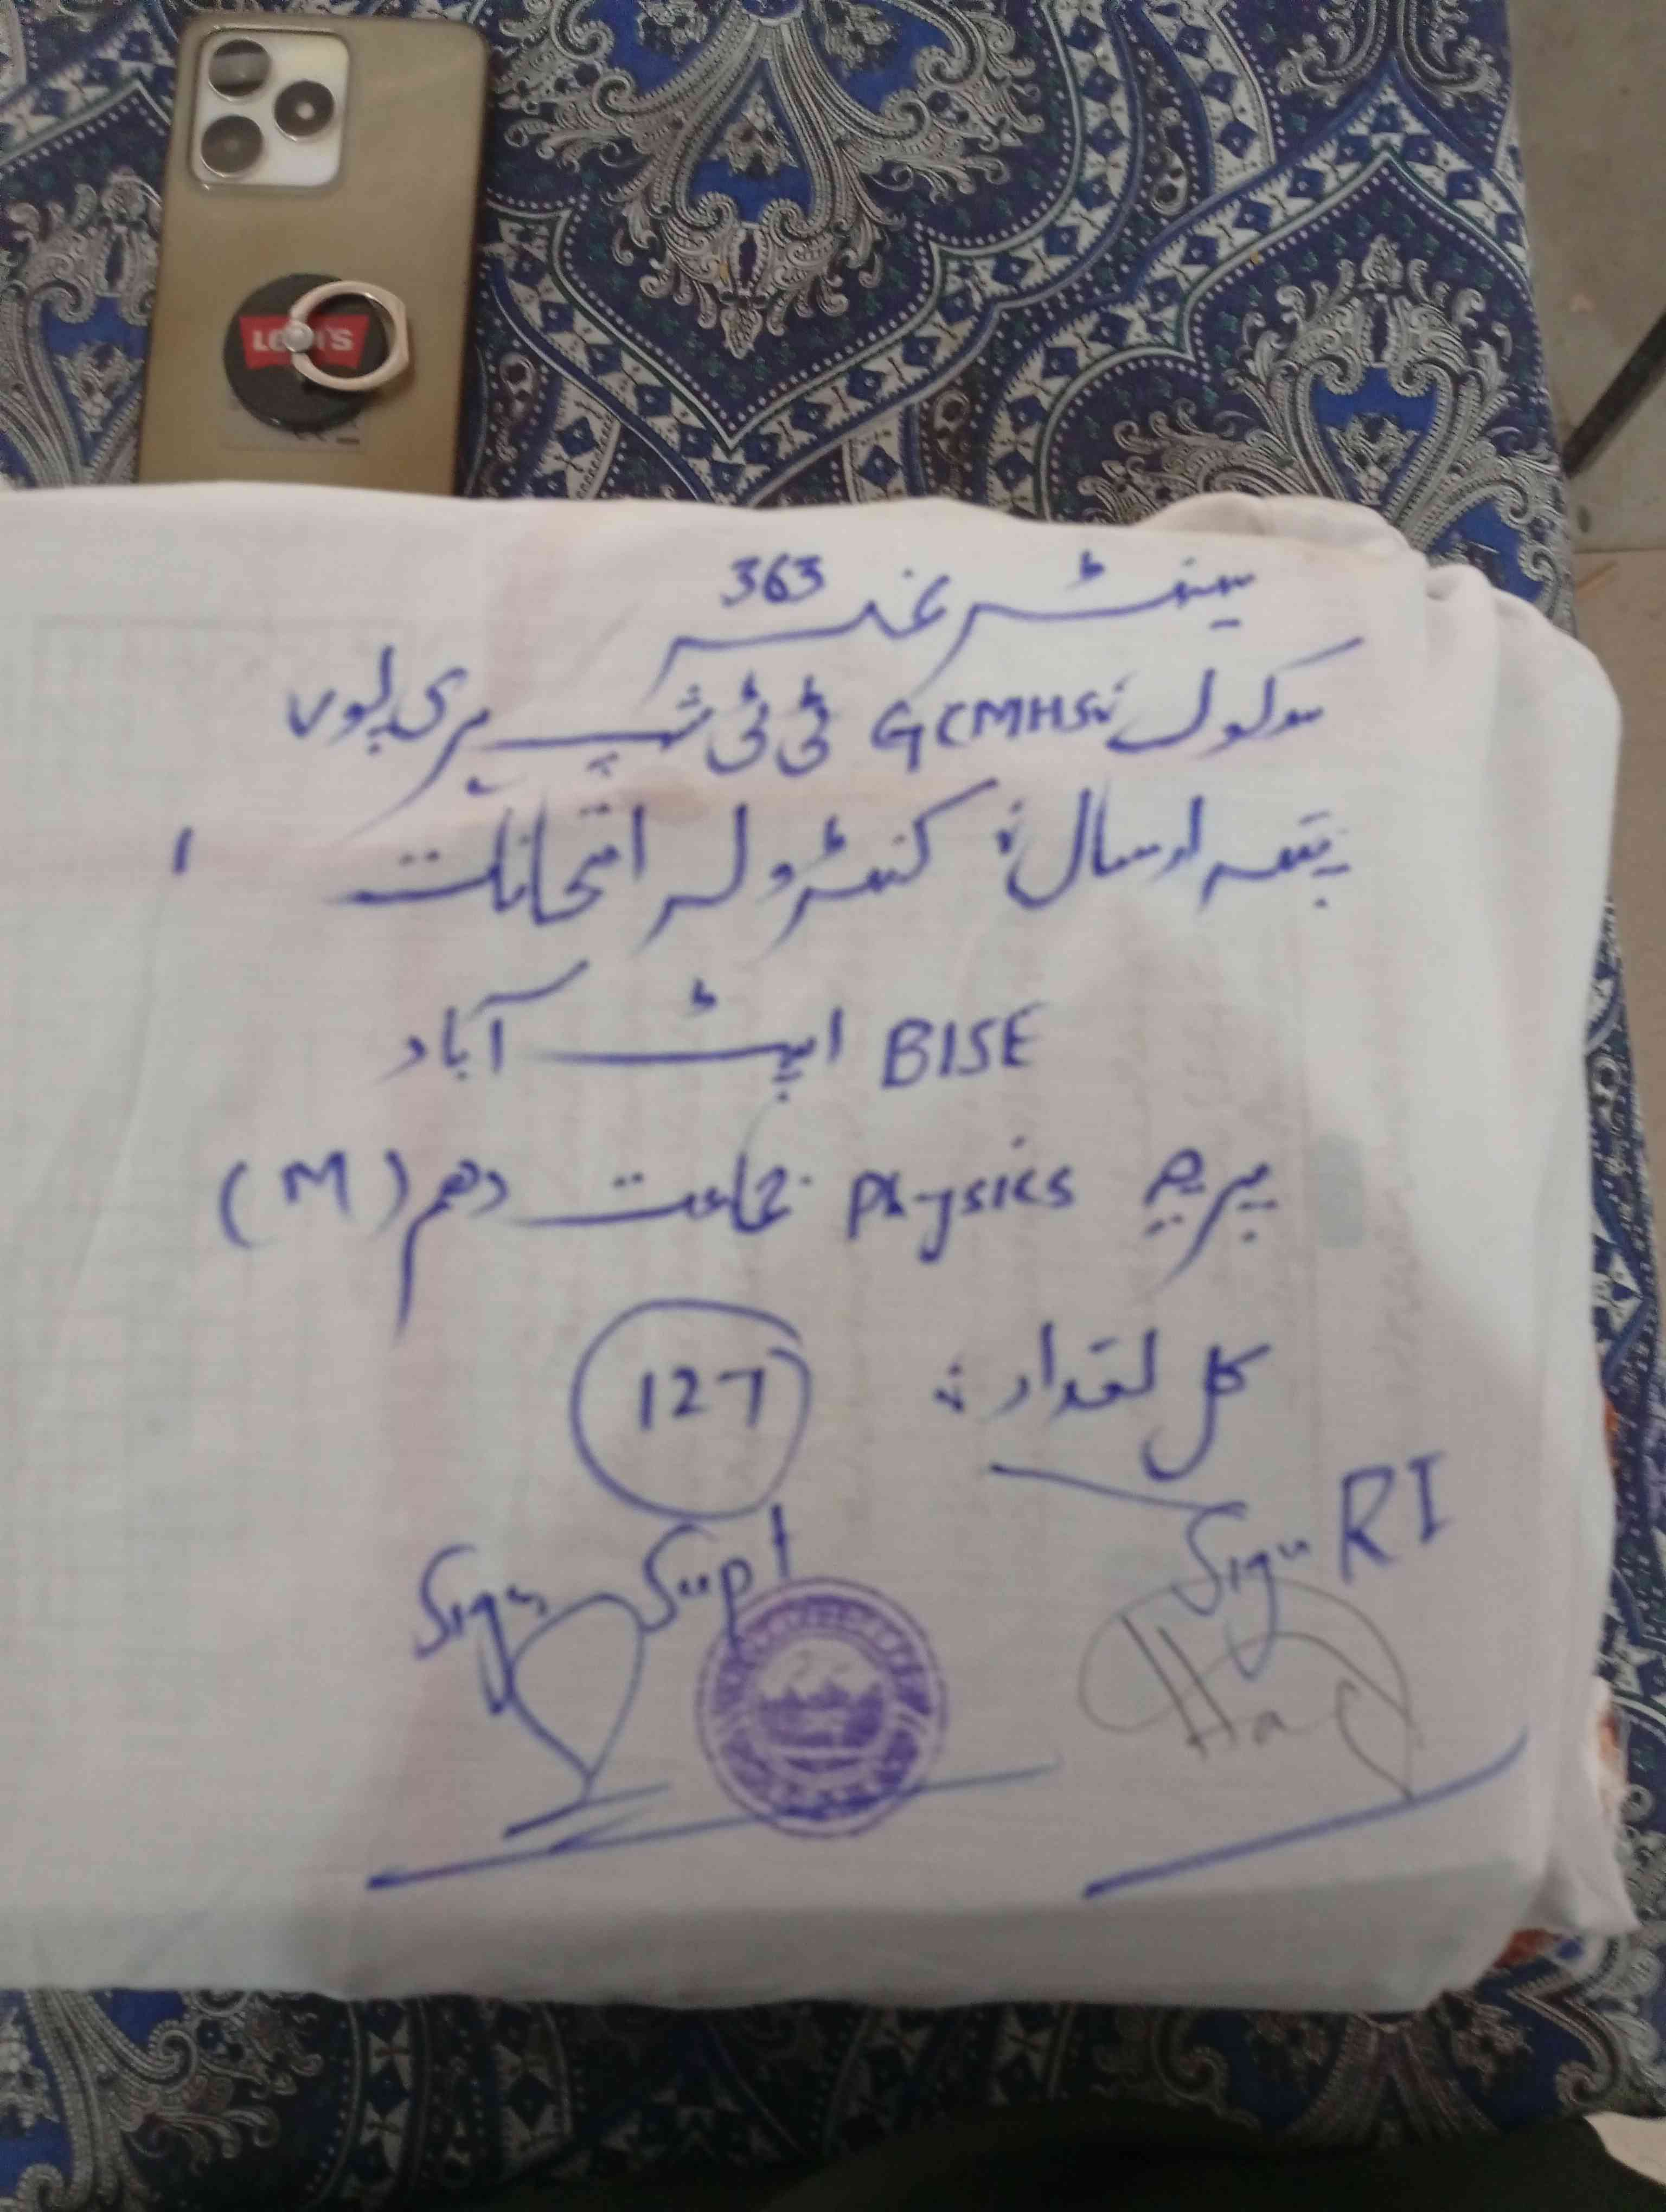 LEVI'S
سینٹر نمبر 363
سکول: GCMHS ٹی ٹی شپ ہری پور
بقعہ ارسال: کنٹرولر امتحانات
BISE ایبٹ آباد
پرچہ Physics جماعت دھم (M)
کل تعداد: 127
Sign Supt Sign RI